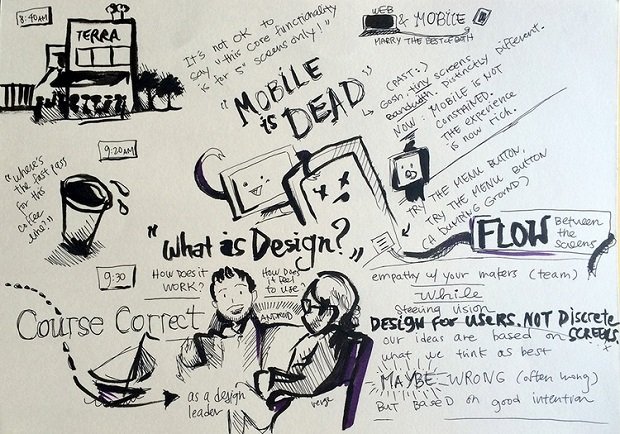 8:40AM
TERRA
9:20AM
"Where's
the fast pass
for this
coffee
line?!"
9:30
It's not OK to
say "this core functionality
is for 5" screens only!"
"MOBILE
is DEAD"
WEB
& MOBILE
MARRY THE BEST OF BOTH
(PAST:)
Gosh, tiny screens.
Bandwidth. Distinctly different.
NOW: MOBILE IS NOT
CONSTRAINED.
THE EXPERIENCE
IS NOW RICH.
TRY THE MENU BUTTON,
TRY THE MENU BUTTON
(A DUMPING GROUND)
FLOW
Between
the
screens
"What is Design?"
HOW DOES IT
WORK?
HOW DOES
it feel
to use?
ANDROID
verge
Course Correct
as a design
leader
empathy w/ your makers (team)
While
steering vision
DESIGN for USERS. NOT Discrete
SCREENS.
our ideas are based on
what we think as best
MAYBE WRONG (often wrong)
BUT BASED on good intention